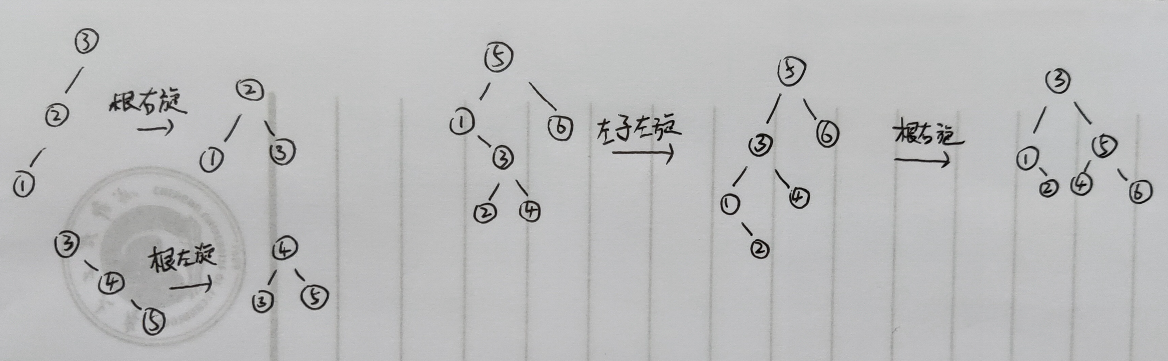 ③
②
①
根右旋
②
① ③
③
④
⑤
根左旋
④
③ ⑤
⑤
① ⑥
③
② ④
左子左旋
⑤
③ ⑥
① ④
②
根右旋
③
① ⑤
② ④ ⑥